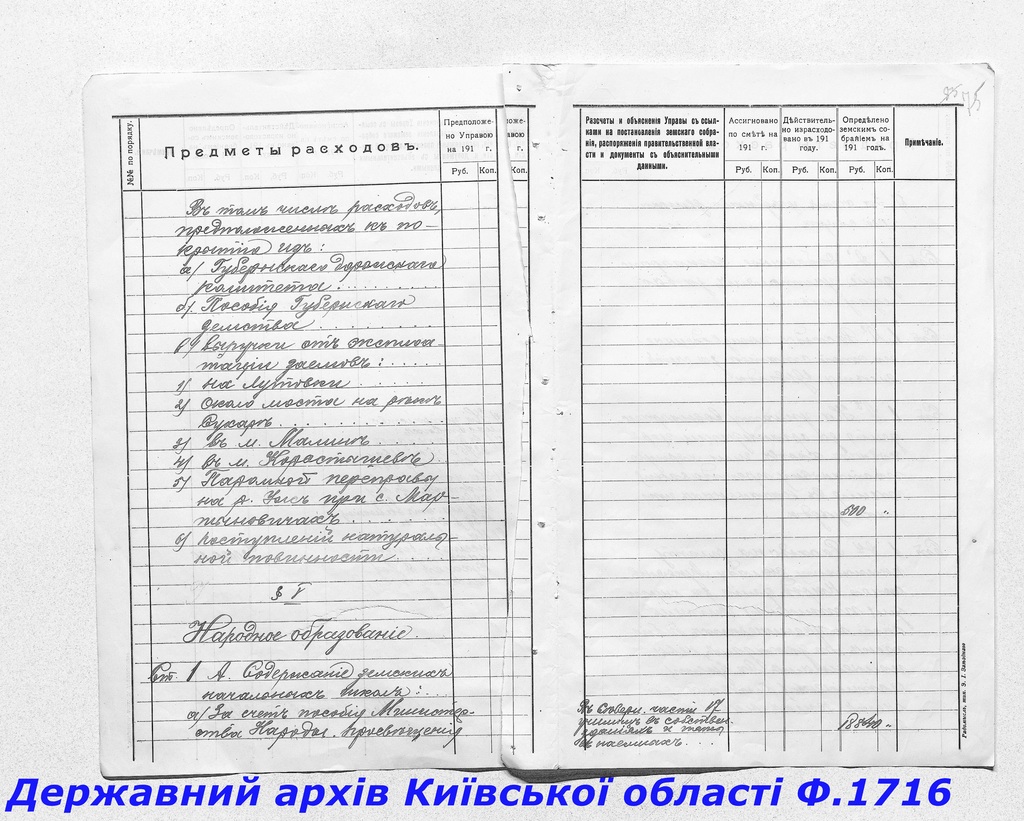 №№ по порядку.
Предметы расходовъ.
Предположе-
но Управою
на 191 г.
Руб. Коп.
Въ томъ числѣ расходовъ,
предположенныхъ къ по-
крытію изъ:
а) Губернскаго дорожнаго
комитета:
б) Пособія Губернскаго
земства
в) выручки отъ эксплоа-
таціи
1)
2) Около моста на рѣкѣ
3) въ м. Малинѣ
4) въ м. Коростышевѣ
5) Паромной переправы
на р. Ушъ при с. Мар-
тыновичахъ
6) поступленій натураль-
ной повинности
§ V
Народное образованіе.
Ст. 1 А. Содержаніе земскихъ
начальныхъ школъ:
а) За счетъ пособія Министер-
ства Народн. Просвѣщенія
поже-
вою
г.
Коп.
Разсчеты и объясненія Управы съ ссыл-
ками на постановленія земскаго собра-
нія, распоряженія правительственной вла-
сти и документы съ объяснительными
данными.
Ассигновано
по смѣтѣ на
191 г.
Руб. Коп.
Дѣйствитель-
но израсходо-
вано въ 191
году.
Руб. Коп.
Опредѣлено
земскимъ со-
браніемъ на
191 годъ.
Руб. Коп.
Примѣчаніе.
500 "
части 17
училищъ въ собствен.
зданіяхъ и
въ наемныхъ
Радомысль, тип.
Державний архів Київської області Ф.1716